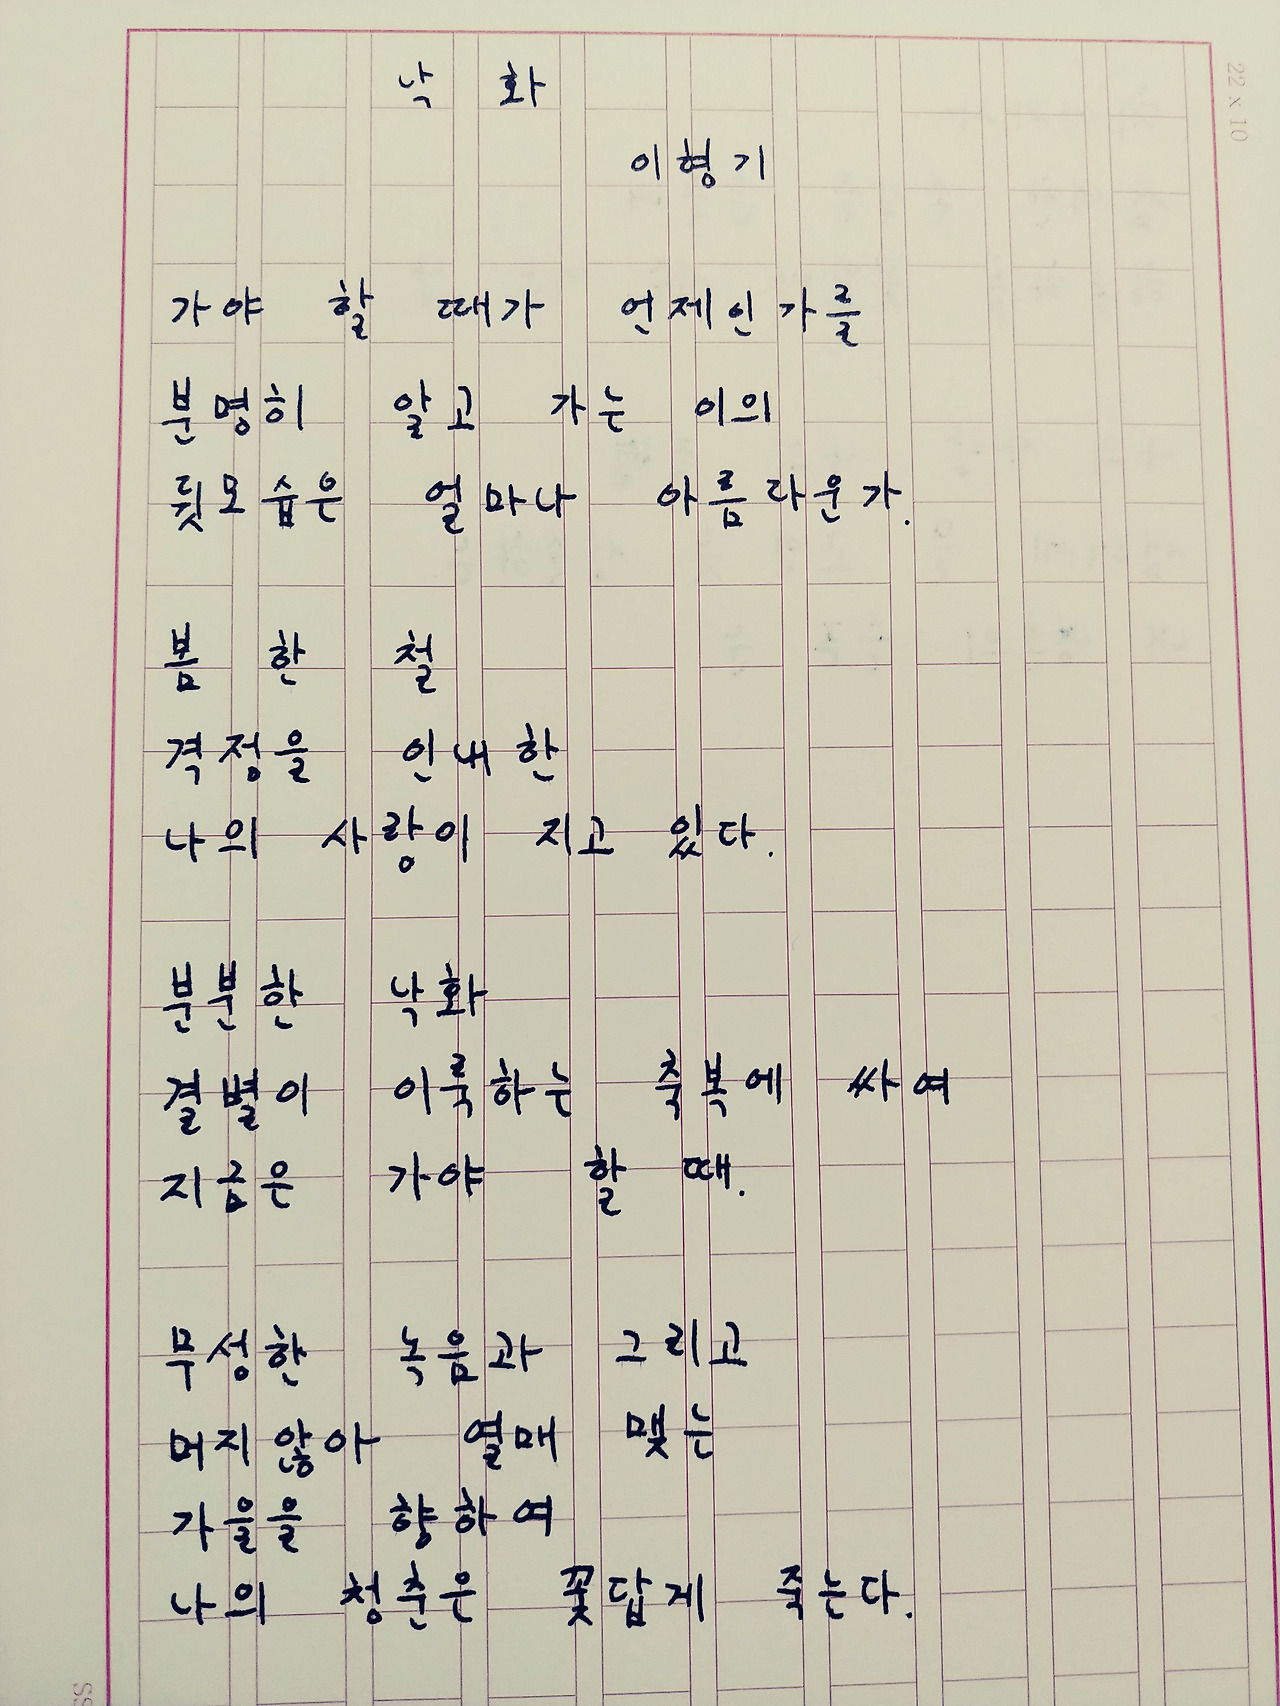 낙 화
이형기
가야 할 때가 언제인가를
분명히 알고 가는 이의
뒷모습은 얼마나 아름다운가.
봄 한 철
격정을 인내한
나의 사랑이 지고 있다.
분분한 낙화
결별이 이룩하는 축복에 싸여
지금은 가야 할 때.
무성한 녹음과 그리고
머지않아 열매 맺는
가을을 향하여
나의 청춘은 꽃답게 죽는다.
22 x 10